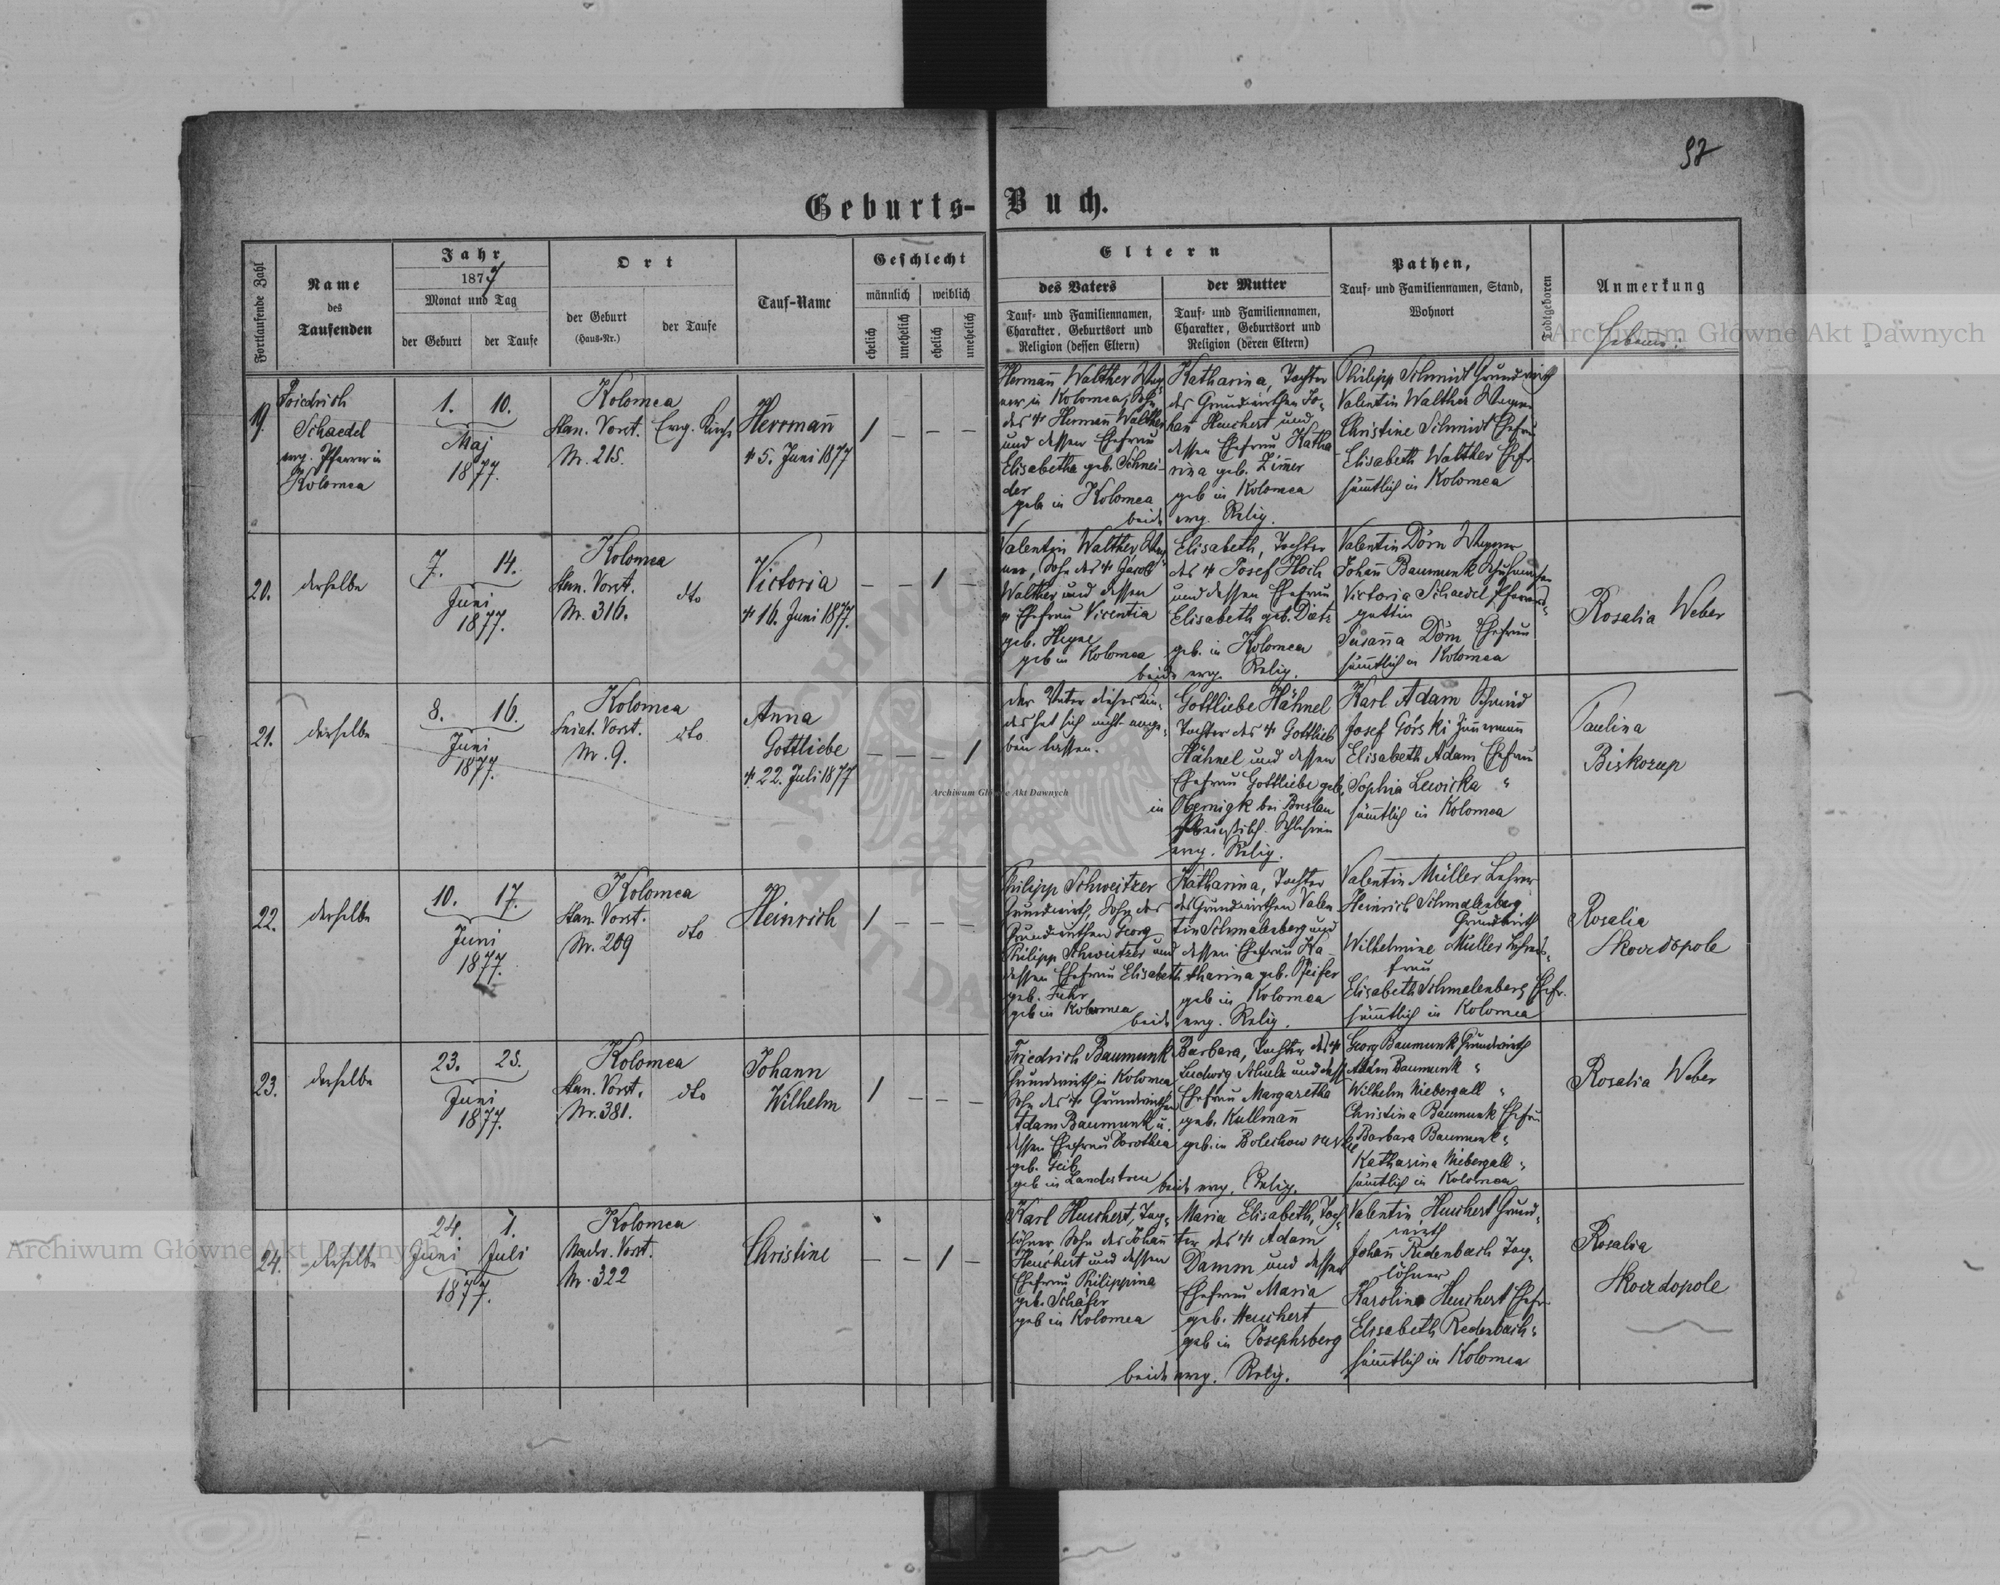 97
Geburts-Buch.
Fortlaufende Zahl
Name
des
Taufenden
Jahr
1877
Monat und Tag
der Geburt
der Taufe
Ort
der Geburt
(Haus-Nr.)
der Taufe
Tauf-Name
Geschlecht
männlich
weiblich
ehelich
unehelich
ehelich
unehelich
Eltern
des Vaters
Tauf- und Familiennamen,
Charakter, Geburtsort und
Religion (dessen Eltern)
der Mutter
Tauf- und Familiennamen,
Charakter, Geburtsort und
Religion (deren Eltern)
Pathen,
Tauf- und Familiennamen, Stand,
Wohnort
Todtgeboren
Anmerkung
Hebame:
19.
Friedrich
Schaedel
evg. Pfarrer in
Kolomea
1. 10.
Maj
1877.
Kolomea
Stan. Vorst.
Nr. 215.
Evg. Kirche
Herrmañ
+ 5. Juni 1877
Hermañ Walther Wag
ner in Kolomea, Sohn
des + Hermañ Walther
und dessen Ehefrau
Elisabetha geb. Schnei-
der
geb in Kolomea
Katharina, Tochter
des Grundwirthen Jo-
hañ Heuchert und
dessen Ehefrau Katha
rina geb. Zim̃er
geb in Kolomea
beide evg. Relig.
Philipp Schmidt Grundwirth
Valentin Walther Wagner
Christine Schmidt Ehefrau
Elisabeth Walther Ehefr
säm̃tlich in Kolomea
20.
derselbe
7. 14.
Juni
1877.
Kolomea
Stan. Vorst.
Nr. 316.
dto
Victoria
+ 16. Juni 1877.
Valentin Walther Wag-
ner, Sohn des + Jacob
Walther und dessen
+ Ehefrau Vicentia
geb. Heyne
geb in Kolomea
Elisabeth, Tochter
des + Josef Hoch
und dessen Ehefrau
Elisabeth geb. Dietz
geb. in Kolomea
beide evg. Relig.
Valentin Dörn Wagner
Johañ Baumunk
Victoria Schaedel Pfarrers-
gattin
Susaña Dörn Ehefrau
säm̃tlich in Kolomea
Rosalia Weber
21.
derselbe
8. 16.
Juni
1877.
Kolomea
Sniat. Vorst.
Nr. 9.
dto
Anna
Gottliebe
+ 22. Juli 1877
der Vater dieses Kin-
des hat sich nicht ange-
ben lassen.
Gottliebe Hähnel
Tochter des + Gottlieb
Hähnel und dessen
Ehefrau Gottliebe geb.
in Obernigk bei Breslau
Schlesien
evg. Relig.
Karl Adam Schmid
Josef Górski Zim̃ermañ
Elisabeth Adam Ehefrau
Sophia Lewicka "
säm̃tlich in Kolomea
Paulina
Biskozup
22.
derselbe
10. 17.
Juni
1877.
Kolomea
Stan. Vorst.
Nr. 209
dto
Heinrich
Philipp Schweitzer
Grundwirth, Sohn des
Grundwirthen Georg
Philipp Schweitzer und
dessen Ehefrau Elisabeth
geb. Fuhr
geb in Kolomea
Katharina, Tochter
des Grundwirthen Valen
tin Schmalenberg und
dessen Ehefrau Ka-
tharina geb. Pfeifer
geb in Kolomea
beide evg. Relig.
Valentin Müller Lehrer
Heinrich Schmalenberg
Grundwirth
Wilhelmine Müller Lehrers-
frau
Elisabeth Schmalenberg Ehefr.
säm̃tlich in Kolomea
Rosalia
Skowdopole
23.
derselbe
23. 25.
Juni
1877.
Kolomea
Stan. Vorst.
Nr. 381.
dto
Johann
Wilhelm
Friedrich Baumunk
Grundwirth in Kolomea
Sohn des + Grundwirthen
Adam Baumunk u.
dessen Ehefrau Dorothea
geb. Geib
geb in Landestreu
Barbara, Tochter des +
Ludwig Schulz und dess
Ehefrau Margaretha
geb. Kullmañ
geb. in Bolechow
beide evg. Relig.
Georg Baumunk Grundwirth
Adam Baumunk "
Wilhelm Niebergall "
Christina Baumunk Ehefrau
Barbara Baumunk "
Katharina Niebergall "
säm̃tlich in Kolomea
Rosalia Weber
24.
derselbe
24. 1.
Juni Juli
1877.
Kolomea
Nadw. Vorst.
Nr. 322
Christine
Karl Heuchert, Tag-
löhner Sohn des Johañ
Heuchert und dessen
Ehefrau Philippina
geb. Schäfer
geb in Kolomea
Maria Elisabeth, Toch-
ter des + Adam
Damm und dessen
Ehefrau Maria
geb. Heuchert
geb in Josephsberg
beide evg. Relig.
Valentin Heuchert Grund-
wirth
Johañ Redenbach Tag-
löhner
Karoline Heuchert Ehefr.
Elisabeth Redenbach "
säm̃tlich in Kolomea
Rosalia
Skowdopole
Archiwum Główne Akt Dawnych
Archiwum Główne Akt Dawnych
Archiwum Główne Akt Dawnych